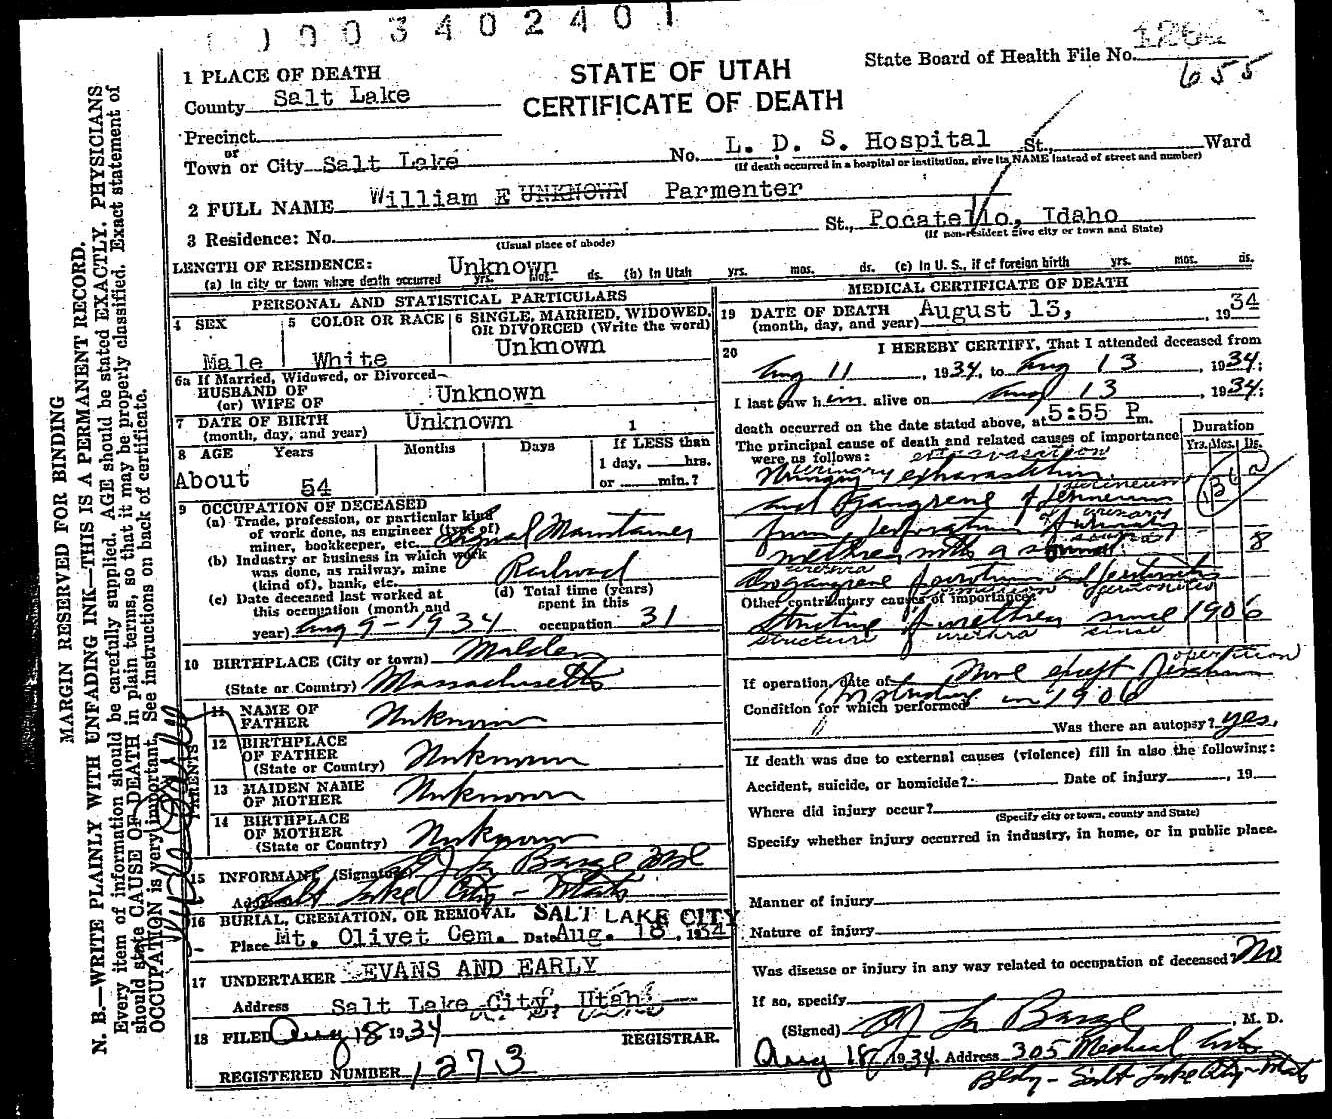 0 0 3 4 0 2 4 0 1
State Board of Health File No.
655
STATE OF UTAH
CERTIFICATE OF DEATH
1 PLACE OF DEATH
County Salt Lake
Precinct
or
Town or City Salt Lake No. L. D. S. Hospital St., Ward
(If death occurred in a hospital or institution, give its NAME instead of street and number)
2 FULL NAME William E UNKNOWN Parmenter
3 Residence: No. St., Pocatello, Idaho
(Usual place of abode) (If non-resident give city or town and State)
LENGTH OF RESIDENCE:
(a) In city or town where death occurred Unknown yrs. mos. ds. (b) In Utah yrs. mos. ds. (c) In U. S., if of foreign birth yrs. mos. ds.
PERSONAL AND STATISTICAL PARTICULARS
4 SEX
Male
5 COLOR OR RACE
White
6 SINGLE, MARRIED, WIDOWED, OR DIVORCED (Write the word)
Unknown
6a If Married, Widowed, or Divorced
HUSBAND OF
(or) WIFE OF Unknown
7 DATE OF BIRTH
(month, day, and year) Unknown
8 AGE Years Months Days If LESS than
1 day, hrs.
or min.?
About 54
9 OCCUPATION OF DECEASED
(a) Trade, profession, or particular kind
of work done, as engineer (type of)
miner, bookkeeper, etc. Signal Maintainer
(b) Industry or business in which work
was done, as railway, mine
(kind of), bank, etc. Railroad
(c) Date deceased last worked at
this occupation (month and
year) Aug 9 - 1934
(d) Total time (years)
spent in this
occupation 31
10 BIRTHPLACE (City or town) Malden
(State or Country) Massachusetts
PARENTS
11 NAME OF
FATHER Unknown
12 BIRTHPLACE
OF FATHER
(State or Country) Unknown
13 MAIDEN NAME
OF MOTHER Unknown
14 BIRTHPLACE
OF MOTHER
(State or Country) Unknown
15 INFORMANT (Signature)
Address Salt Lake City - Utah
16 BURIAL, CREMATION, OR REMOVAL SALT LAKE CITY
Place Mt. Olivet Cem. Date Aug. 18, 1934
17 UNDERTAKER EVANS AND EARLY
Address Salt Lake City, Utah
18 FILED Aug 18 1934 REGISTRAR.
REGISTERED NUMBER 1273
MEDICAL CERTIFICATE OF DEATH
19 DATE OF DEATH
(month, day, and year) August 13, 1934
20 I HEREBY CERTIFY, That I attended deceased from
Aug 11, 1934, to Aug 13, 1934;
I last saw him alive on Aug 13, 1934;
death occurred on the date stated above, at 5:55 P.m.
The principal cause of death and related causes of importance
were as follows:
Duration
Yrs. Mos. Ds.
extravasation
urinary
and Gangrene of perineum
from perforation of urinary
urethra with a sound
8
Other contributory causes of importance:
Stricture of urethra since 1906
stricture urethra since
If operation, date of None except operation
Condition for which performed in 1906
Was there an autopsy? yes.
If death was due to external causes (violence) fill in also the following:
Accident, suicide, or homicide? Date of injury , 19
Where did injury occur?
(Specify city or town, county and State)
Specify whether injury occurred in industry, in home, or in public place.
Manner of injury
Nature of injury
Was disease or injury in any way related to occupation of deceased? No
If so, specify
(Signed) , M. D.
Aug 18 1934 Address 305 Medical Arts
Bldg - Salt Lake City - Utah
MARGIN RESERVED FOR BINDING
N. B.—WRITE PLAINLY WITH UNFADING INK—THIS IS A PERMANENT RECORD.
Every item of information should be carefully supplied. AGE should be stated EXACTLY. PHYSICIANS
should state CAUSE OF DEATH in plain terms, so that it may be properly classified. Exact statement of
OCCUPATION is very important. See instructions on back of certificate.